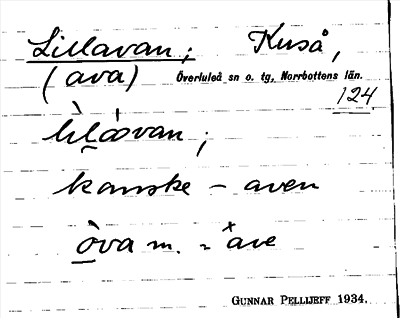 Lillavan; Kuså,
(ava) Överluleå sn o. tg, Norrbottens län.
124
lìlåvan;
kanske – aven
òva m. = ave
GUNNAR PELLIJEFF 1934.